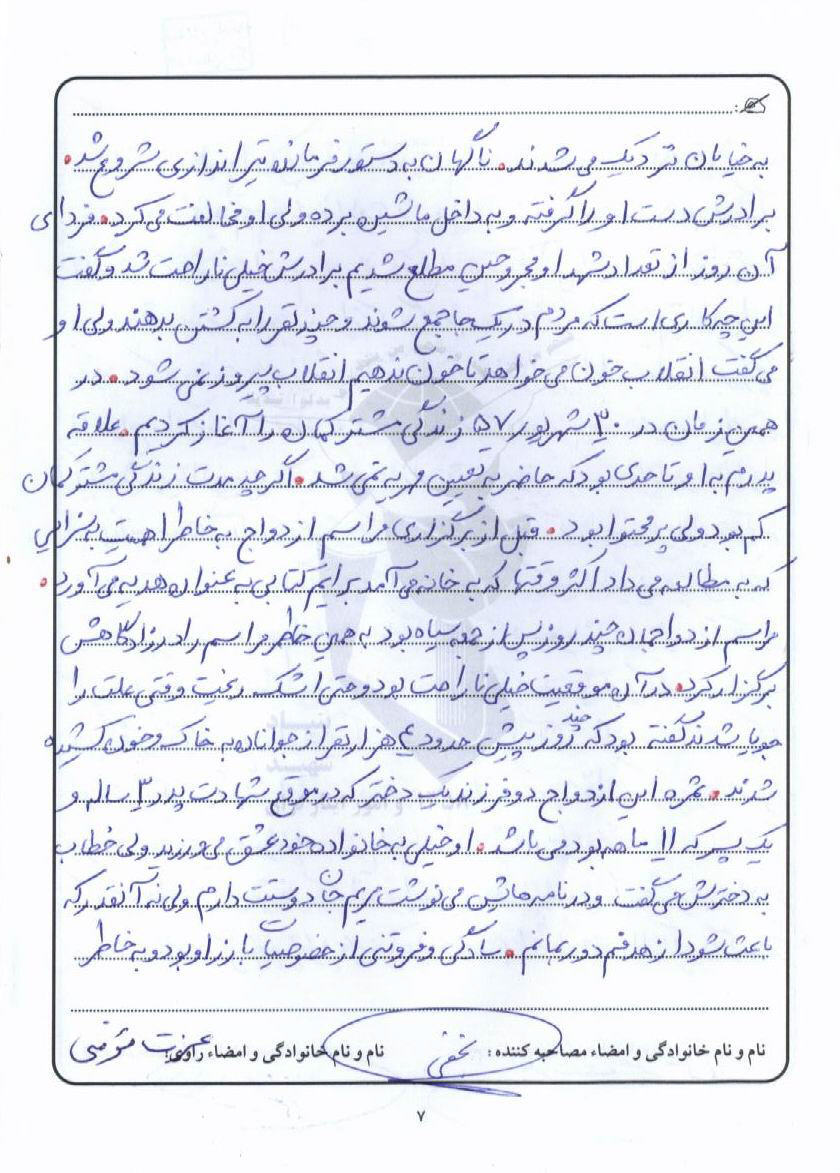 به خیابان نزدیک می شدند. ناگهان به دستور فرمانده تیر اندازی شروع شد.
برادرش دست او را گرفته و به داخل ماشین برده ولی او مخالفت می کرد. فردای
آن روز از تعداد شهدا و مجروحین مطلع شدیم برادرش خیلی ناراحت شد و گفت
این چه کاری است که مردم در یک جا جمع شوند و چند نفر را به کشتن بدهند ولی او
می گفت انقلاب خون می خواهد تا خون ندهیم انقلاب پیروز نمی شود. در
همین زمان در ۳۰ شهریور ۵۷ زندگی مشترکمان را آغاز کردیم. علاقه
پدرم به او تا حدی بود که حاضر به تعیین مهریه نمی شد. اگر چه مدت زندگی مشترکمان
کم بود ولی پر محتوا بود. قبل از برگزاری مراسم ازدواج به خاطر اهمیت به سزایی
که به مطالعه می داد اکثر وقتها که به خانه می آمد برایم کتابی به عنوان هدیه می آورد.
مراسم ازدواجمان چند روز پس از جمعه سیاه بود به همین خاطر مراسم را در زادگاهش
برگزار کرد. در آن موقعیت خیلی ناراحت بود و حتی اشک ریخت وقتی علت را
جویا شدند گفته بود که چند روز پیش حدود ۴ هزار نفر از جوانان به خاک و خون کشیده
شدند. ثمره این ازدواج دو فرزند یک دختر که در موقع شهادت پدر ۳ ساله و
یک پسر که ۱۱ ماهه بود می باشد. او خیلی به خانواده خود عشق می ورزید ولی خطاب
به دخترش می گفت و در نامه هایش می نوشت مریم جان دوستت دارم ولی نه آنقدر که
باعث شود از هدفم دور بمانم. سادگی و فروتنی از خصوصیات بارز او بود و به خاطر
نام و نام خانوادگی و امضاء مصاحبه کننده: نجفی نام و نام خانوادگی و امضاء راوی: عزت مؤمنی
۷